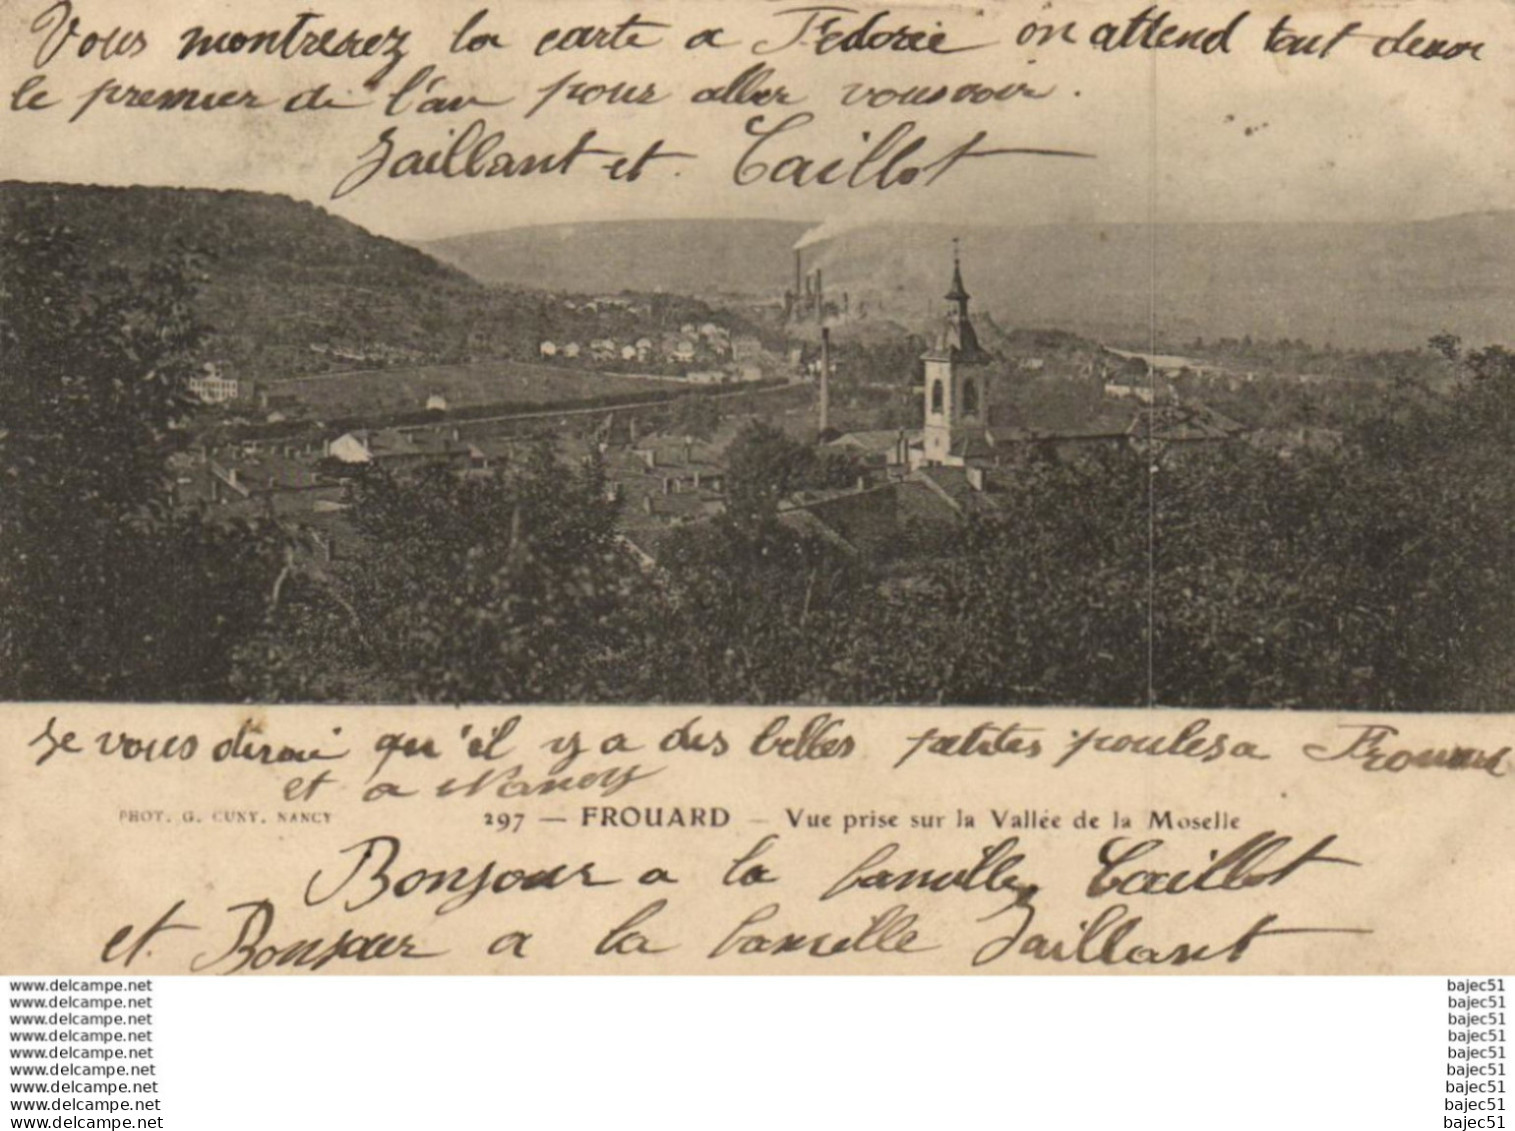 Vous montrerez la carte a Fedorie on attend tout deux
le premier di l'an pour aller vous voir.
Jaillant et Caillot
Je vous dirai qu'il y a des belles petites poules a Frouard
et a Nancy
PHOT. G. CUNY, NANCY
297 — FROUARD — Vue prise sur la Vallée de la Moselle
Bonjour a la famille Caillot
et Bonjour a la famille Jaillant
www.delcampe.net bajec51
www.delcampe.net bajec51
www.delcampe.net bajec51
www.delcampe.net bajec51
www.delcampe.net bajec51
www.delcampe.net bajec51
www.delcampe.net bajec51
www.delcampe.net bajec51
www.delcampe.net bajec51